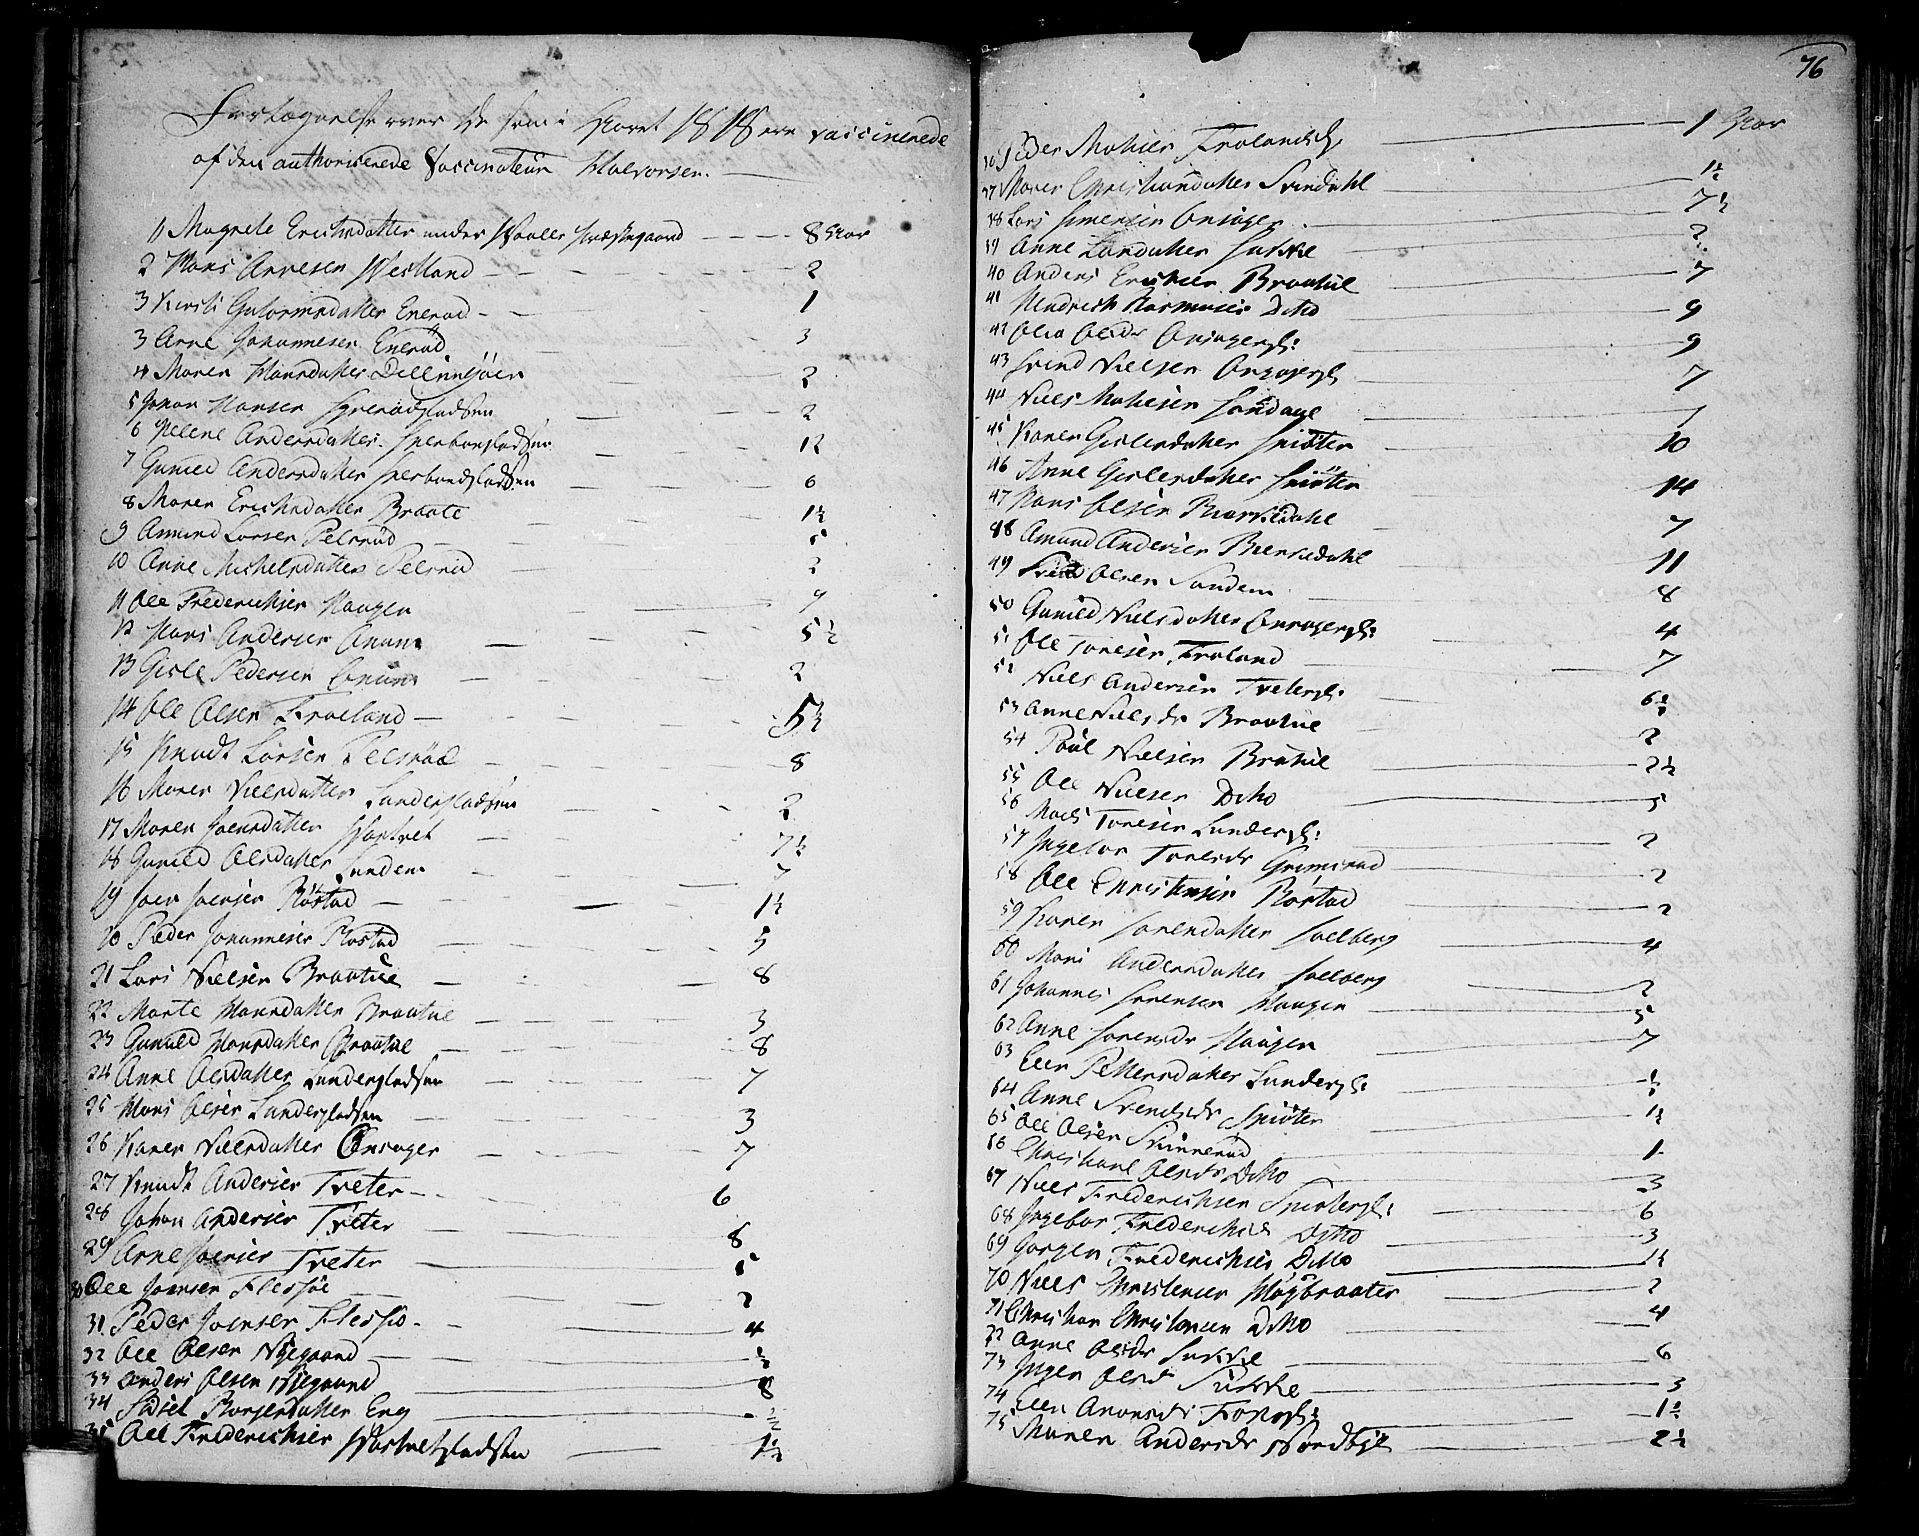 Fortegnelse over de som i Aaret 1818 ere vaccinerede
af den authoriserede Vaccinateur Halvorsen.
1 Magrete Erichsdatter under Waaler Præstegaard 8 Aar
2 Hans Arnesen Westland 2
3 Kirsti Gulormsdatter Enerød 1
3 Arne Johannesen Enerød 3
4 Maren Hansdatter 2
5 Johan Hansen 2
6 Helene Andersdatter 12
7 Gunild Andersdatter 6
8 Maren Erichsdatter Braate 1½
9 Amund Larsen Pelsrød 5
10 Anne Michelsdatter Pelsrød 2
11 Ole Frederichsen Haugen 9
12 Hans Andersen Onum 5½
13 Gisle Pedersen Onum 2
14 Ole Olsen Froeland 5½
15 Knudt Larsen Pelsrød 8
16 Maren Nielsdatter Lunderpladsen 2
17 Maren Joensdatter 7½
18 Gunild Olsdatter Sunden 7
19 Joen Joensen Røstad 1½
20 Peder Johannesen Røstad 5
21 Lars Nielsen Braatue 8
22 Marte Hansdatter Braatue 3
23 Gunild Hansdatter Braatue 8
24 Anne Olsdatter Lunderpladsen 7
25 Hans Olsen Lunderpladsen 3
26 Karen Nielsdatter Onsager 7
27 Knudt Andersen Tveter 6
28 Johan Andersen Tveter 8
29 Arne Joensen Tveter 5
30 Ole Joensen Flesjøe 2
31 Peder Joensen Flesjø 4
32 Ole Olsen Nygaard ½
33 Anders Olsen Nygaard 8
34 Sidsel Borgersdatter Eng ½
35 Ole Frederichsen 1½
76
36 Peder Mathisen Frolandspl: 1 Aar
37 Maren Christiansdatter Svindahl 1½
38 Lars Simensen Onsager 7½
39 Anne Larsdatter Sukke 2
40 Anders Erichsen Braatue 7
41 Hendrich Rasmusen Ditto 9
42 Olia Olsdr Onsagerpl: 9
43 Svend Nielsen Onsagerpl: 7
44 Niels Mathisen
45 Karen Gislesdatter Smiøter 10
46 Anne Gislesdatter Smiøter 14
47 Hans Olsen 7
48 Amund Andersen 11
49 Olsen Sanden 8
50 Gunild Nielsdatter Onsagerpl: 4
51 Ole Toresen Froland 7
52 Niels Andersen Tveterpl: 6½
53 Anne Nielsdr Braatue 2
54 Poul Nielsen Bratue 2½
55 Ole Nielsen Ditto 5
56 Mads Toresen Lunderpl: 2
57 Ingebor Toresdr Grimsrød 2
58 Ole Christensen Røstad 2
59 Karen Sørensdatter Solberg 4
60 Mari Andersdatter Solberg 2
61 Johannes Sørensen Haugen 5
62 Anne Sørensdr Haugen 7
63 Elen Pettersdatter Lunderpl: ½
64 Anne Svendsdr Smiøter 1½
65 Ole Olsen Skinnerød 1
66 Christiane Olsdr Ditto 3
67 Niels Frederichsen Smiøterpl: 6
68 Ingebor Frederichsdr Ditto 3
69 Gorgen Frederichsen Ditto 1½
70 Niels Christensen Høybraaten 2
71 Christian Christensen Ditto 4
72 Anne Olsdr Sukke 6
73 Inger Olsdr Sukke 3
74 Elen Aronsdr 1½
75 Maren Andersdr Nordbye 2½